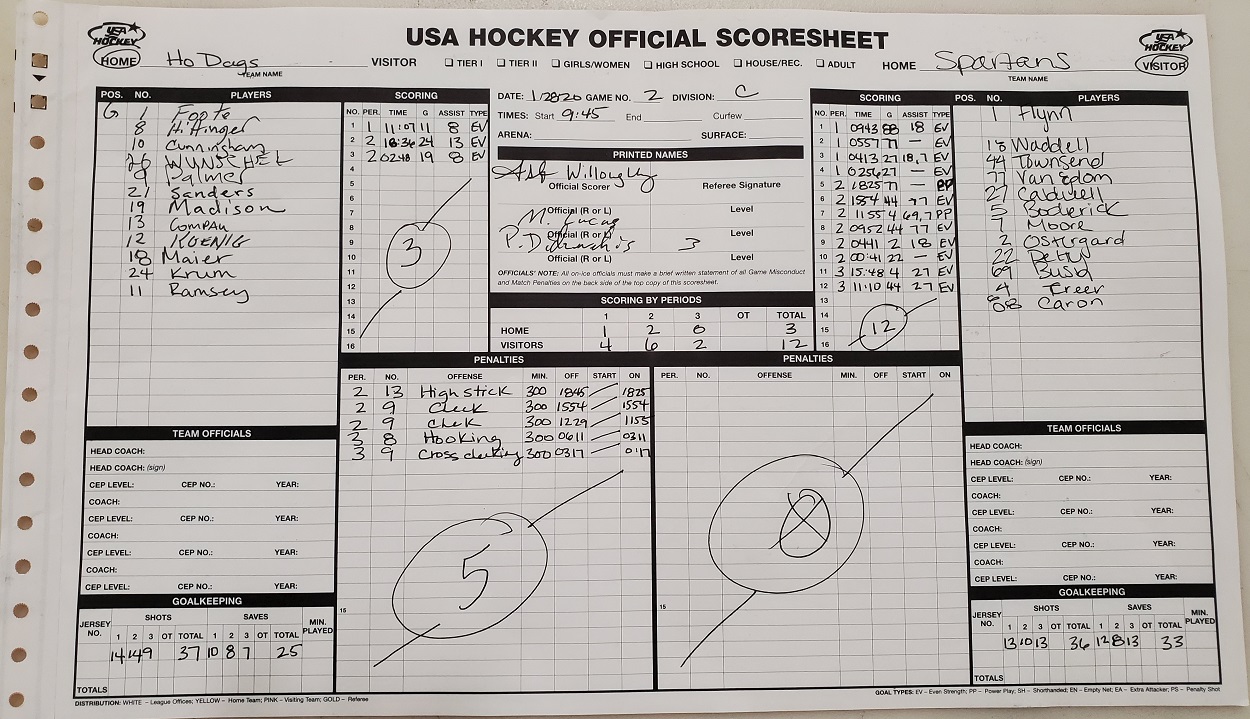 USA HOCKEY OFFICIAL SCORESHEET
USA HOCKEY
HOME Ho Dags VISITOR TIER I TIER II GIRLS/WOMEN HIGH SCHOOL HOUSE/REC. ADULT HOME Spartans VISITOR
TEAM NAME TEAM NAME
USA HOCKEY
POS. NO. PLAYERS
G 1 Foote
8 Hittinger
10 Cunningham
26 WUNSCHEL
9 Palmer
21 Sanders
19 Madison
13 Compau
12 KOENIG
18 Maier
24 Krum
11 Ramsey
SCORING
NO. PER. TIME G ASSIST TYPE
1 1 11:07 11 8 EV
2 2 16:36 24 13 EV
3 2 0248 19 8 EV
4
5
6
7
8
9
10
11
12
13
14
15
16
3
DATE: 1/28/20 GAME NO. 2 DIVISION: C
TIMES: Start 9:45 End Curfew
ARENA: SURFACE:
PRINTED NAMES
Willoughy
Official Scorer Referee Signature
Official (R or L) Level
M. Lucas
Official (R or L) Level
P. 3
Official (R or L) Level
OFFICIALS' NOTE: All on-ice officials must make a brief written statement of all Game Misconduct
and Match Penalties on the back side of the top copy of this scoresheet.
SCORING BY PERIODS
1 2 3 OT TOTAL
HOME 1 2 0 3
VISITORS 4 6 2 12
SCORING
NO. PER. TIME G ASSIST TYPE
1 1 0943 88 18 EV
2 1 0557 77 — EV
3 1 0413 27 18,7 EV
4 1 0256 27 — EV
5 2 1825 77 — PP
6 2 1554 44 77 EV
7 2 1155 4 69,7 PP
8 2 0952 44 77 EV
9 2 0441 2 18 EV
10 2 00:41 22 — EV
11 3 15:48 4 27 EV
12 3 11:10 44 27 EV
13
14
15
16
12
POS. NO. PLAYERS
1 Flynn
18 Waddell
44 Townsend
77 Van edom
27 Caldwell
5 Boderick
7 Moore
2 Ostergard
22
69 Busid
4 Freer
88 Caron
PENALTIES
PER. NO. OFFENSE MIN. OFF START ON
2 13 High stick 300 1845 1825
2 9 Check 300 1554 1554
2 9 Chek 300 1229 1155
3 8 Hooking 300 0611 0311
3 9 Cross checking 300 0317 0:17
5
15
PENALTIES
PER. NO. OFFENSE MIN. OFF START ON
15
TEAM OFFICIALS
HEAD COACH:
HEAD COACH: (sign)
CEP LEVEL: CEP NO.: YEAR:
COACH:
CEP LEVEL: CEP NO.: YEAR:
COACH:
CEP LEVEL: CEP NO.: YEAR:
COACH:
CEP LEVEL: CEP NO.: YEAR:
GOALKEEPING
JERSEY NO. SHOTS SAVES MIN. PLAYED
1 2 3 OT TOTAL 1 2 3 OT TOTAL
14 14 9 37 10 8 7 25
TOTALS
TEAM OFFICIALS
HEAD COACH:
HEAD COACH: (sign)
CEP LEVEL: CEP NO.: YEAR:
COACH:
CEP LEVEL: CEP NO.: YEAR:
COACH:
CEP LEVEL: CEP NO.: YEAR:
COACH:
CEP LEVEL: CEP NO.: YEAR:
GOALKEEPING
JERSEY NO. SHOTS SAVES MIN. PLAYED
1 2 3 OT TOTAL 1 2 3 OT TOTAL
13 10 13 36 12 8 13 33
TOTALS
DISTRIBUTION: WHITE – League Offices; YELLOW – Home Team; PINK – Visiting Team; GOLD – Referee
GOAL TYPES: EV – Even Strength; PP – Power Play; SH – Shorthanded; EN – Empty Net; EA – Extra Attacker; PS – Penalty Shot